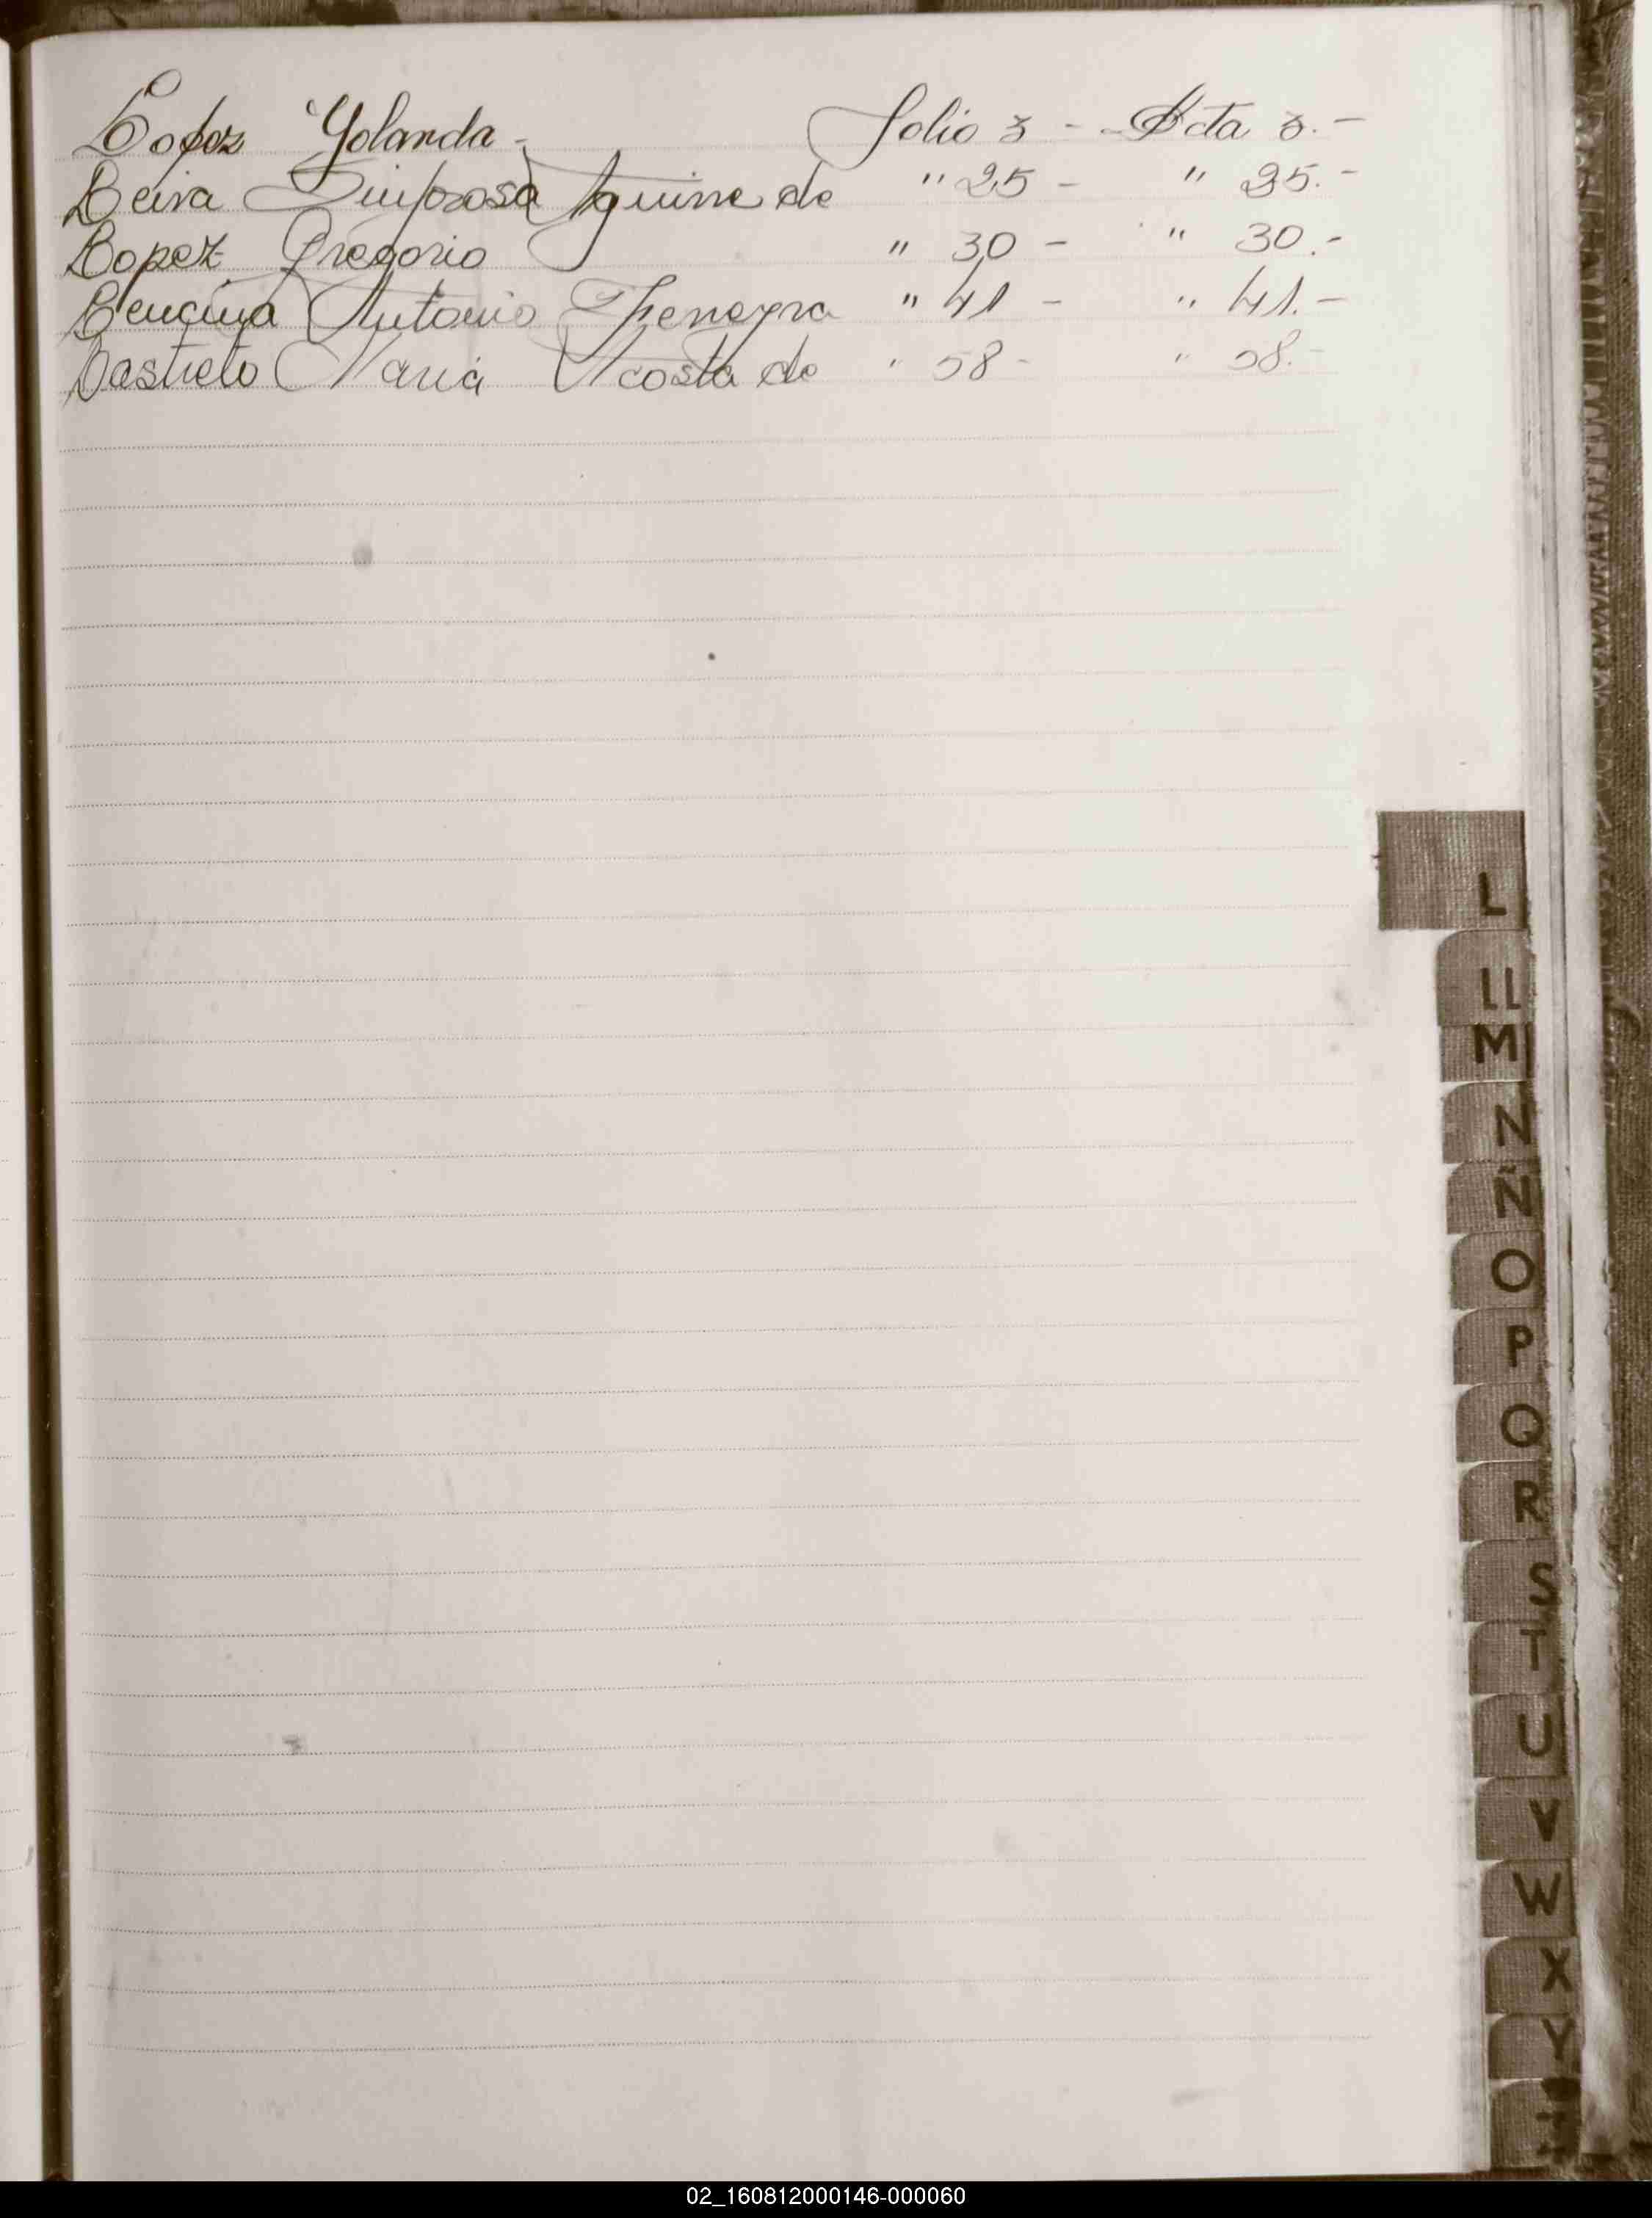 Lopez Yolanda - Folio 3 - Acta 3.-
Leiva Sinforosa Aguirre de " 25 - " 25.-
Lopez Gregorio " 30 - " 30.-
Lencina Antonio " 41 - " 41.-
Maria Acosta de " 58 - " 58.-
L
LL
M
N
Ñ
O
P
Q
R
S
T
U
V
W
X
Y
Z
02_160812000146-000060